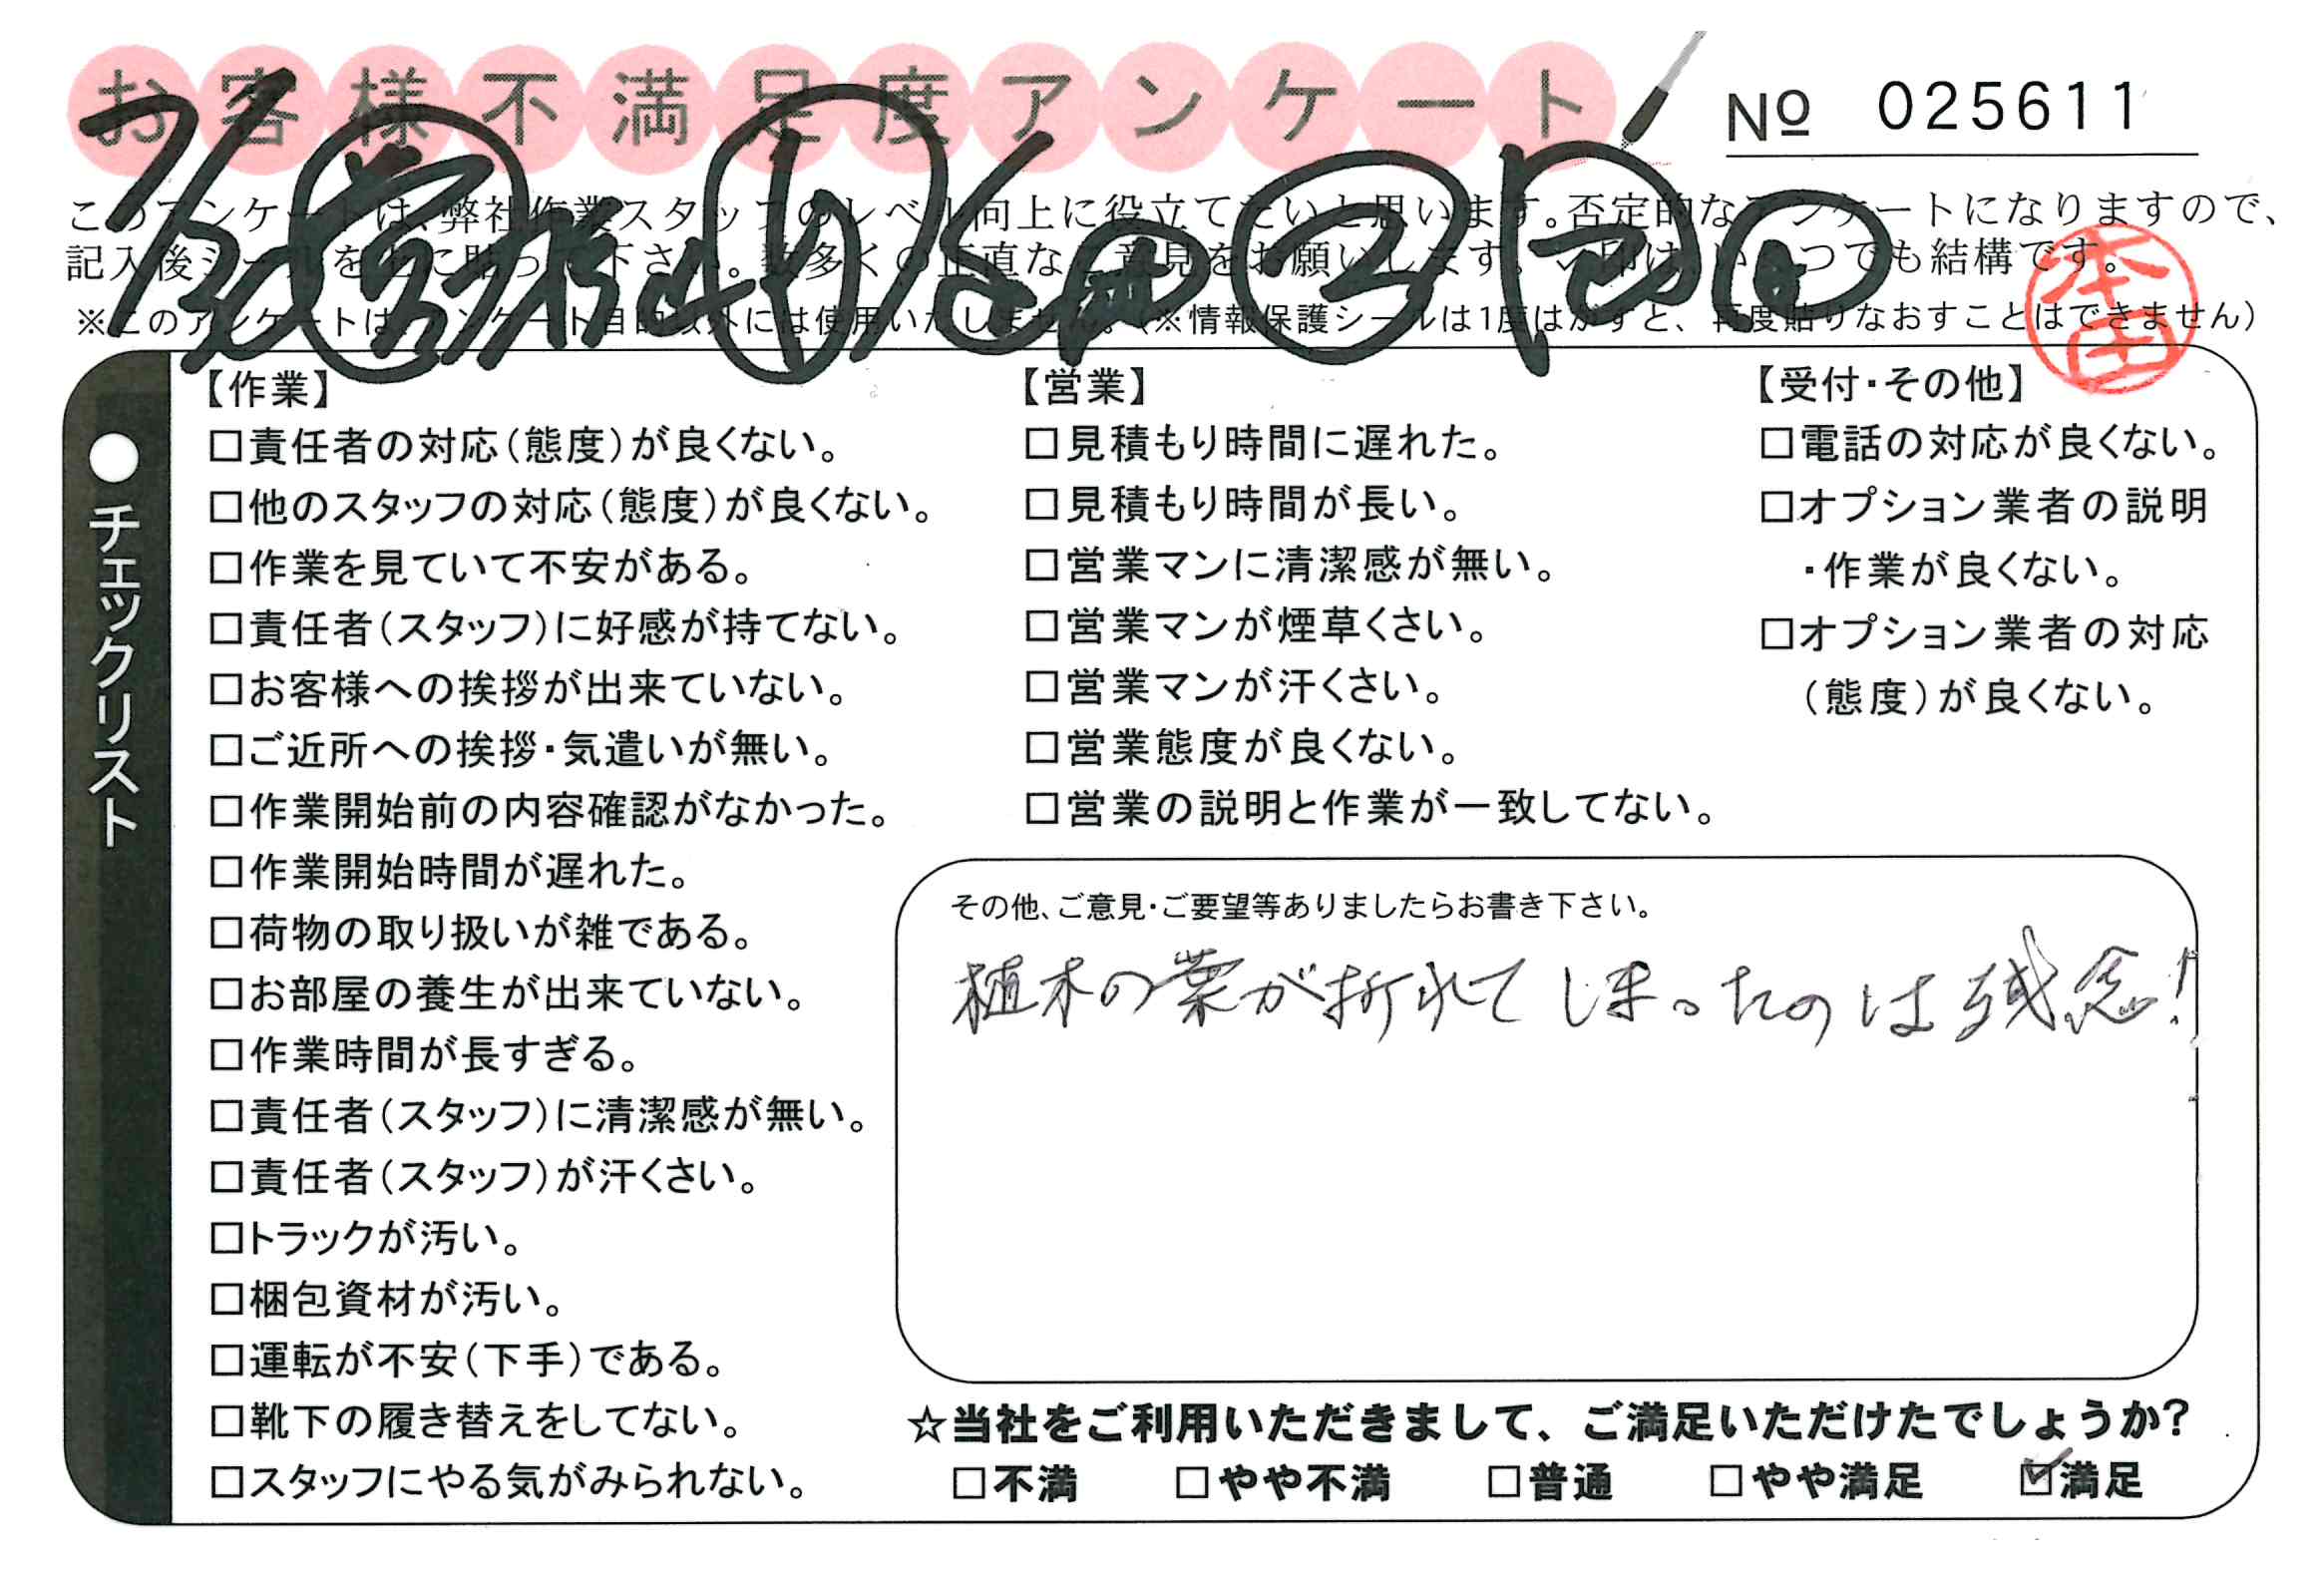 お客様不満足度アンケート
№ 025611
このアンケートは、弊社作業スタッフのレベル向上に役立てたいと思います。否定的なアンケートになりますので、
記入後シールを上に貼って下さい。数多くの正直なご意見をお願いします。レ印はいくつでも結構です。
※このアンケートは、アンケート目的以外には使用いたしません。(※情報保護シールは1度はがすと、再度貼りなおすことはできません)
本田
●チェックリスト
【作業】
□責任者の対応(態度)が良くない。
□他のスタッフの対応(態度)が良くない。
□作業を見ていて不安がある。
□責任者(スタッフ)に好感が持てない。
□お客様への挨拶が出来ていない。
□ご近所への挨拶・気遣いが無い。
□作業開始前の内容確認がなかった。
□作業開始時間が遅れた。
□荷物の取り扱いが雑である。
□お部屋の養生が出来ていない。
□作業時間が長すぎる。
□責任者(スタッフ)に清潔感が無い。
□責任者(スタッフ)が汗くさい。
□トラックが汚い。
□梱包資材が汚い。
□運転が不安(下手)である。
□靴下の履き替えをしてない。
□スタッフにやる気がみられない。
【営業】
□見積もり時間に遅れた。
□見積もり時間が長い。
□営業マンに清潔感が無い。
□営業マンが煙草くさい。
□営業マンが汗くさい。
□営業態度が良くない。
□営業の説明と作業が一致してない。
【受付・その他】
□電話の対応が良くない。
□オプション業者の説明
・作業が良くない。
□オプション業者の対応
(態度)が良くない。
その他、ご意見・ご要望等ありましたらお書き下さい。
植木の葉が折れてしまったのは残念!
☆当社をご利用いただきまして、ご満足いただけたでしょうか?
□不満 □やや不満 □普通 □やや満足 ☑満足